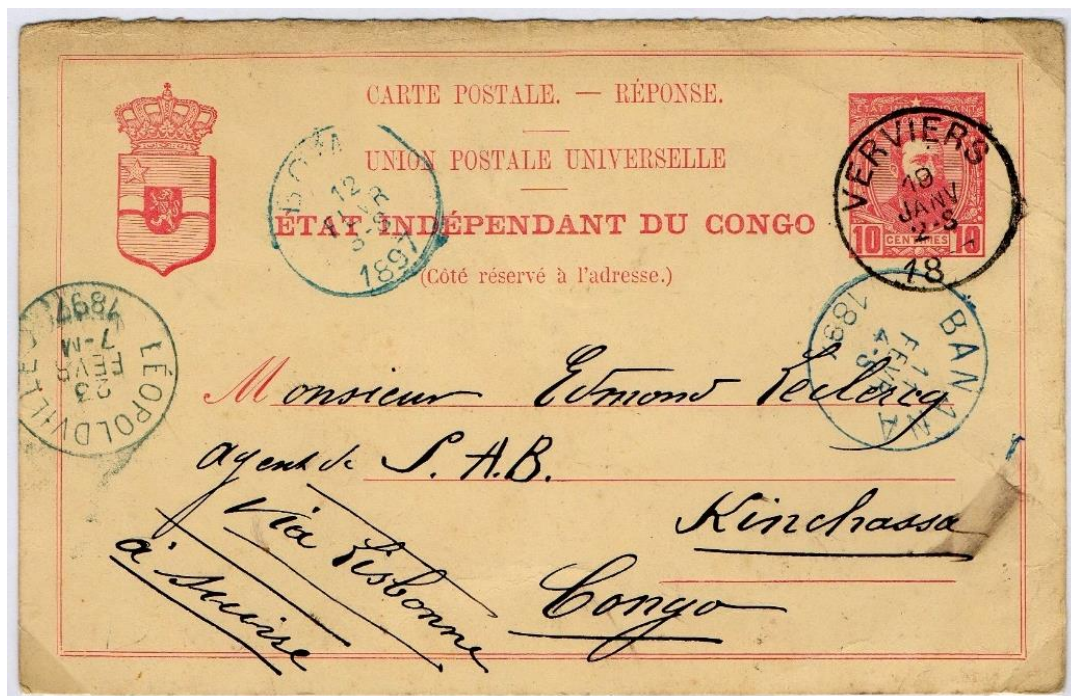 CARTE POSTALE. — RÉPONSE.
UNION POSTALE UNIVERSELLE
ETAT INDÉPENDANT DU CONGO
(Côté réservé à l'adresse.)
ETAT
10 CENTIMES 10
VERVIERS
19
JANV
2-S
18
BOMA
12
1897
BANANA
FEVR
4-S
189
LÉOPOLDVILLE
23
FEVR
7-M
1897
Monsieur Edmond Leclercq
agent de S. A. B.
Kinchassa
Via Lisbonne
Congo
à suivre